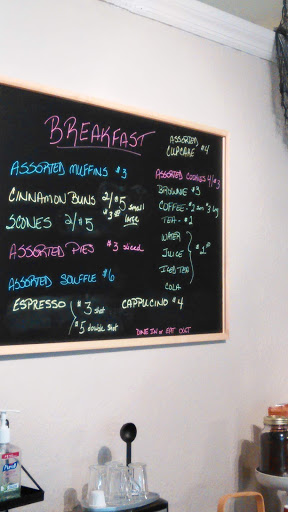 BREAKFAST
ASSORTED MUFFINS $3
CINNAMON BUNS 2/$5 small
$3 large
SCONES 2/$5
ASSORTED PIES $3 sliced
ASSORTED SOUFFLE $6
ESPRESSO $3 shot
$5 double shot
ASSORTED
CUPCAKE $4
ASSORTED COOKIES 4/$3
BROWNIE $3
COFFEE - $2 sm $3 lrg
TEA - $2
WATER
JUICE
ICED TEA
COLA
CAPPUCINO $4
DINE IN or EAT OUT
PURELL